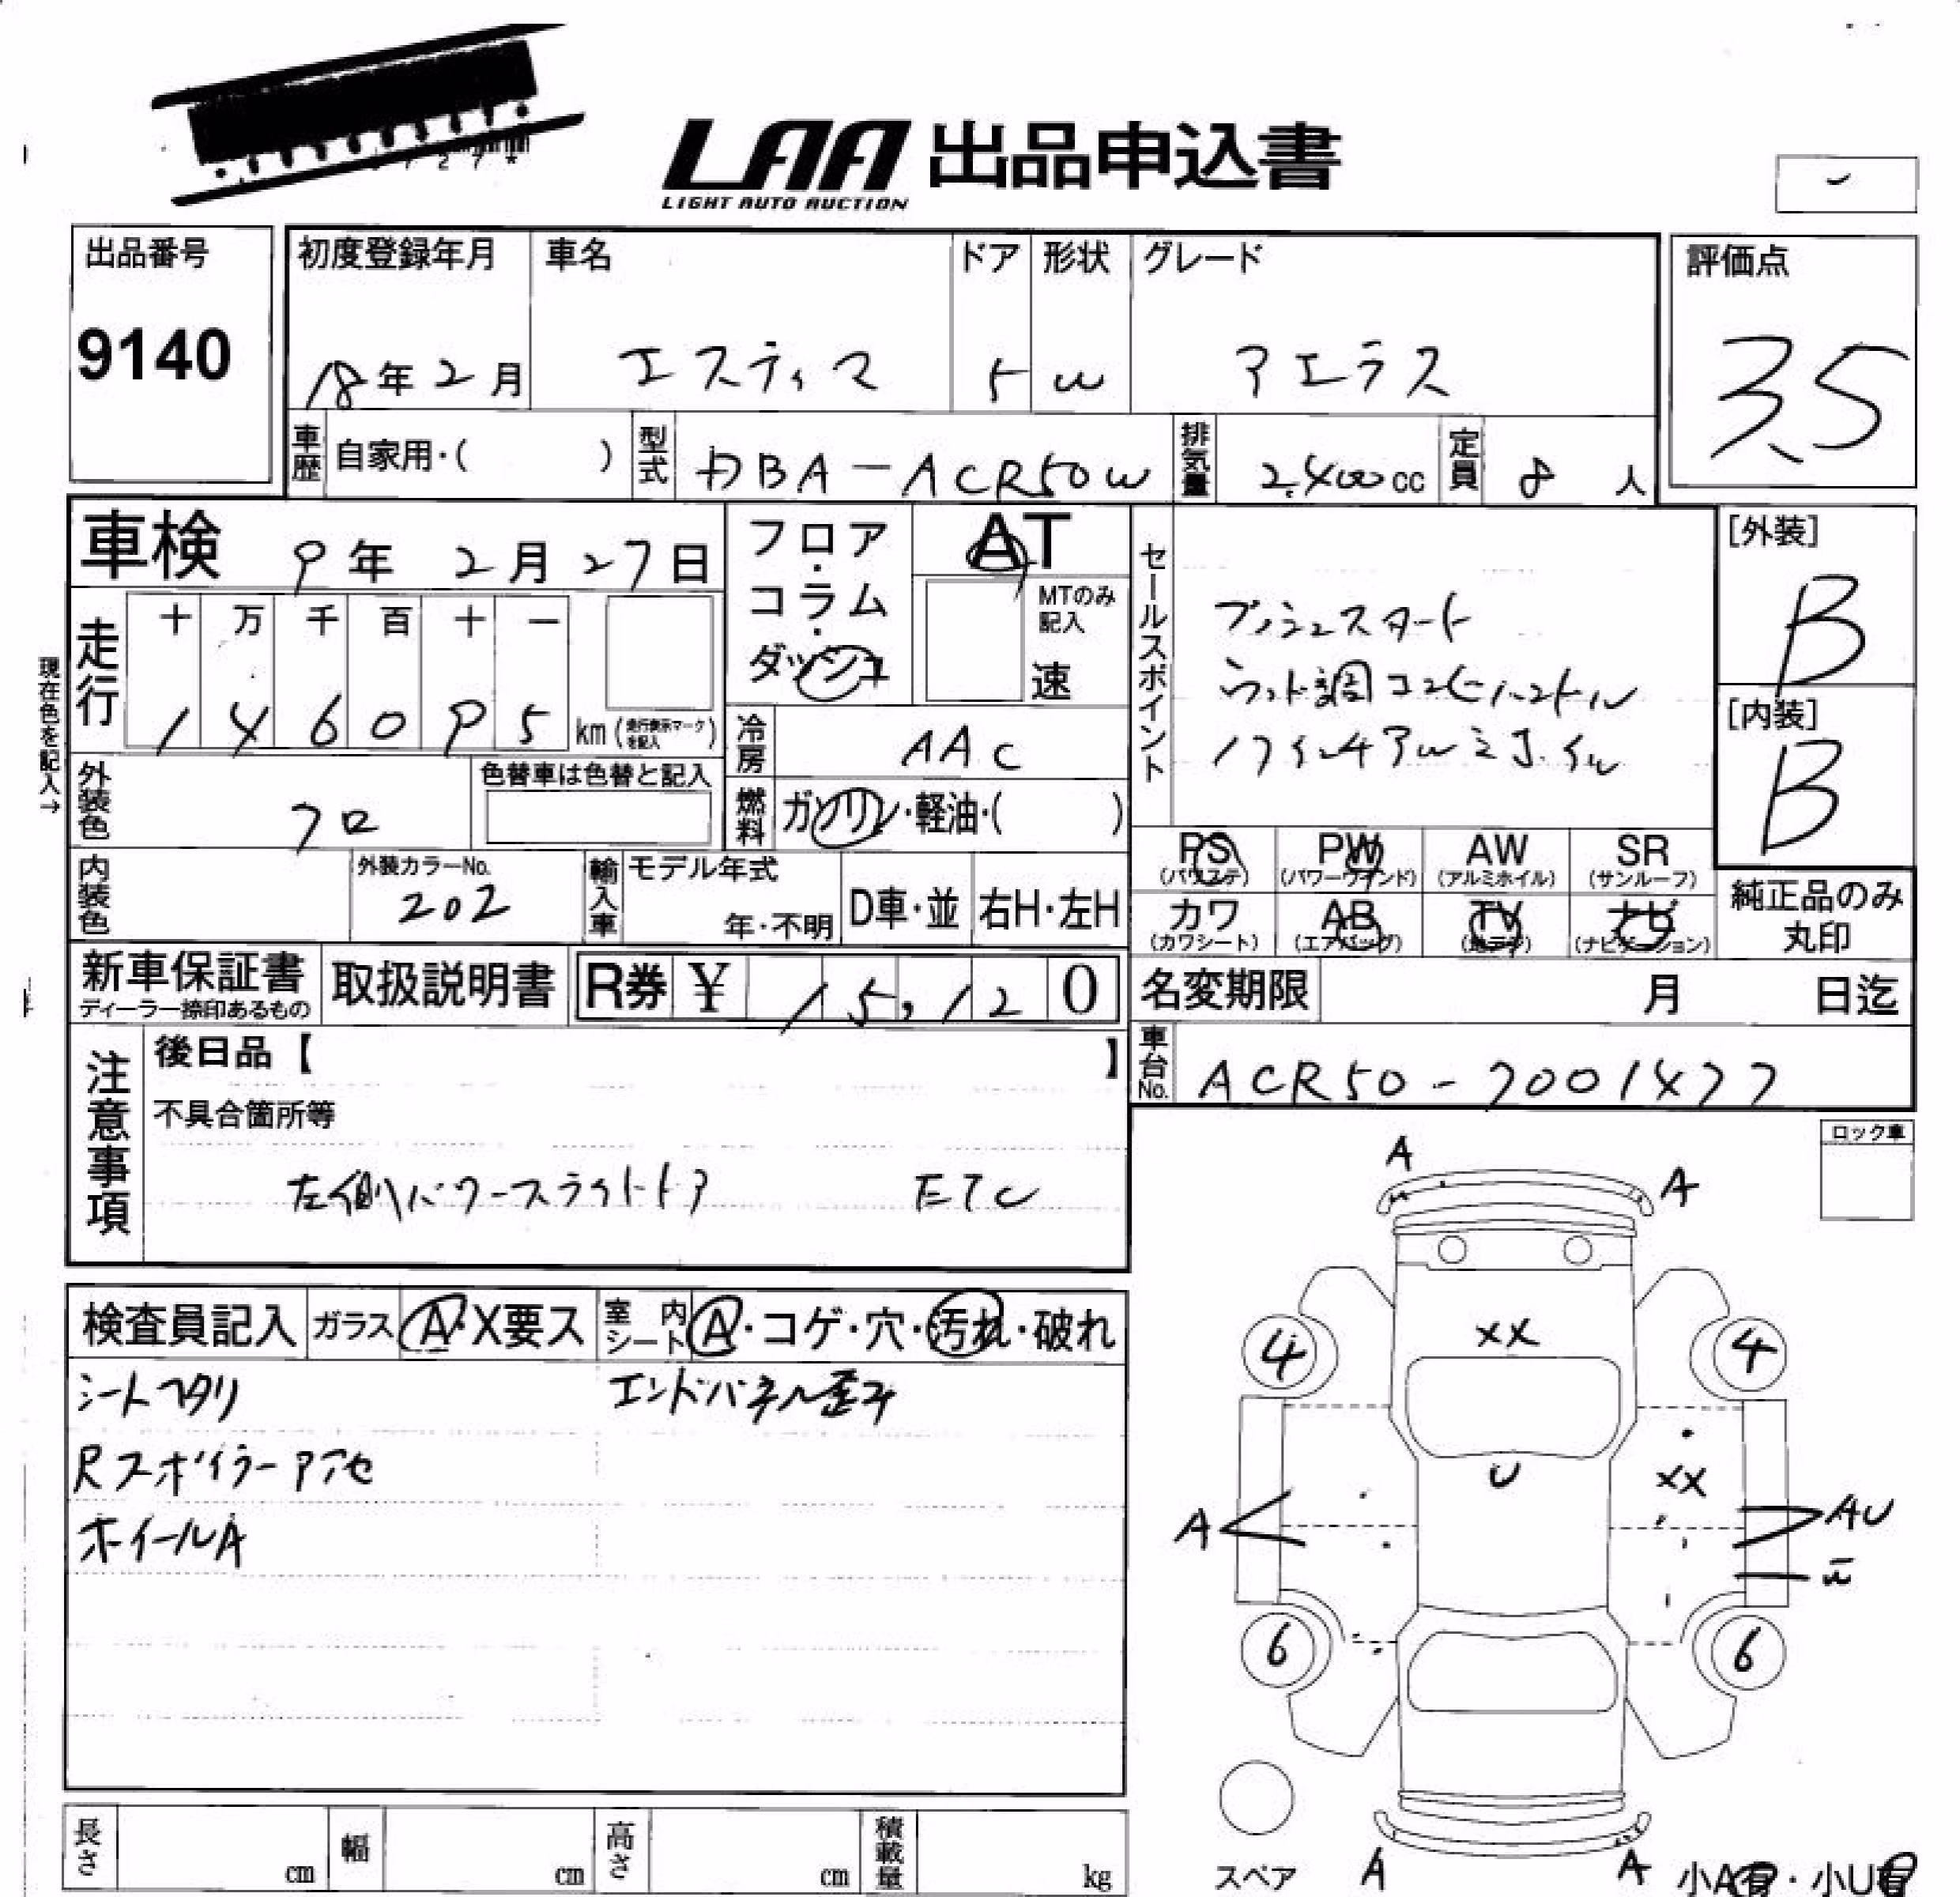 LAA 出品申込書
LIGHT AUTO AUCTION
出品番号
9140
初度登録年月
18年2月
車名
エスティマ
ドア
5
形状
W
グレード
アエラス
評価点
3.5
車歴
自家用・( )
型式
DBA-ACR50W
排気量
2,400cc
定員
8人
車検 9年2月27日
フロア・コラム・ダッシュ
AT
MTのみ記入
速
セールスポイント
プッシュスタート
ウッド調コンビハンドル
17インチアルミホイル
[外装]
B
[内装]
B
現在色を記入→
走行
十 万 千 百 十 一
1 4 6 0 9 5 km (走行表示マークを記入)
冷房
AAC
燃料
ガソリン・軽油・( )
外装色
クロ
色替車は色替と記入
内装色
外装カラーNo.
202
輸入車
モデル年式
年・不明
D車・並
右H・左H
PS
(パワステ)
PW
(パワーウインド)
AW
(アルミホイル)
SR
(サンルーフ)
カワ
(カワシート)
AB
(エアバッグ)
TV
(地デジ)
ナビ
(ナビゲーション)
純正品のみ
丸印
新車保証書
ディーラー捺印あるもの
取扱説明書
R券 ¥ 15,120
名変期限 月 日迄
車台No.
ACR50-7001477
注意事項
後日品【 】
不具合箇所等
左側パワースライドドア ETC
ロック車
検査員記入
ガラス
A・X要ス
室内シート
A・コゲ・穴・汚れ・破れ
シートヘタリ
エンドパネル歪み
Rスポイラーアセ
ホイールA
A
A
4
XX
4
U
XX
A
AU
6
6
スペア
A
A
小A有・小U有
長さ cm
幅 cm
高さ cm
積載量 kg